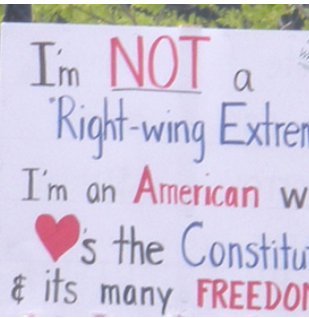 I'm NOT a
"Right-wing Extrem
I'm an American w
♥'s the Constitu
& its many FREEDOM